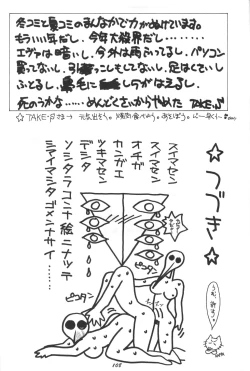 冬コミと夏コミのまんなかで力がぬけています。
もういい年だし、今年大殺界だし・・・・・・・・
エヴァは暗いし、今外は雨ふってるし、パソコン
買ってないし、引越っこしもしてないし、足はくさいし
ふとるし、鼻毛に しらががはえるし、
死のうかな……めんどくさいからやめた TAKE-
☆TAKE- さま→ 元気出そう。焼肉食べやろう。あそぼう。
☆つづき☆
スイマセン
スイマセン
オチガ
カンガエ
ツキマセン
デシタ
ソシタラコンナ絵ニナッテ
シマイマシタゴメンナサイ……
ピコタン
ピコタン
108